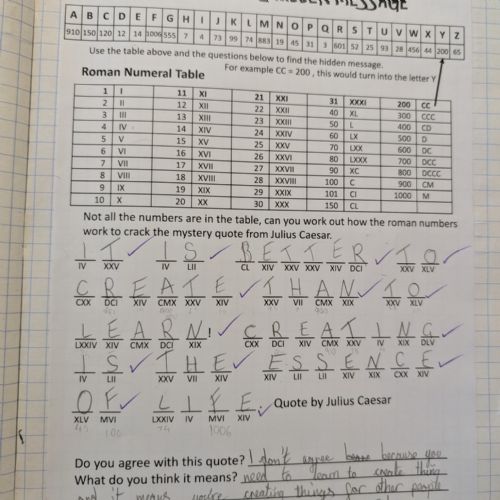 MESSAGE
A B C D E F G H I J K L M N O P Q R S T U V W X Y Z
910 150 120 12 14 1006 555 7 4 73 99 74 883 19 45 31 3 601 52 25 93 28 456 44 200 65
Use the table above and the questions below to find the hidden message.
For example CC = 200 , this would turn into the letter Y
Roman Numeral Table
1 I 11 XI 21 XXI 31 XXXI 200 CC
2 II 12 XII 22 XXII 40 XL 300 CCC
3 III 13 XIII 23 XXIII 50 L 400 CD
4 IV 14 XIV 24 XXIV 60 LX 500 D
5 V 15 XV 25 XXV 70 LXX 600 DC
6 VI 16 XVI 26 XXVI 80 LXXX 700 DCC
7 VII 17 XVII 27 XXVII 90 XC 800 DCCC
8 VIII 18 XVIII 28 XXVIII 100 C 900 CM
9 IX 19 XIX 29 XXIX 101 CI 1000 M
10 X 20 XX 30 XXX 150 CL
Not all the numbers are in the table, can you work out how the roman numbers
work to crack the mystery quote from Julius Caesar.
I T I S B E T T E R T O
IV XXV IV LII CL XIV XXV XXV XIV DCI XXV XLV
C R E A T E T H A N T O
CXX DCI XIV CMX XXV XIV XXV VII CMX XIX XXV XLV
L E A R N ! C R E A T I N G
LXXIV XIV CMX DCI XIX CXX DCI XIV CMX XXV IV XIX DLV
I S T H E E S S E N C E
IV LII XXV VII XIV XIV LII LII XIV XIX CXX XIV
O F L I F E . Quote by Julius Caesar
XLV MVI LXXIV IV MVI XIV
45 74 1006
Do you agree with this quote? I don't agree because you
What do you think it means? need to learn to create thing
and it means you're creating things for other people